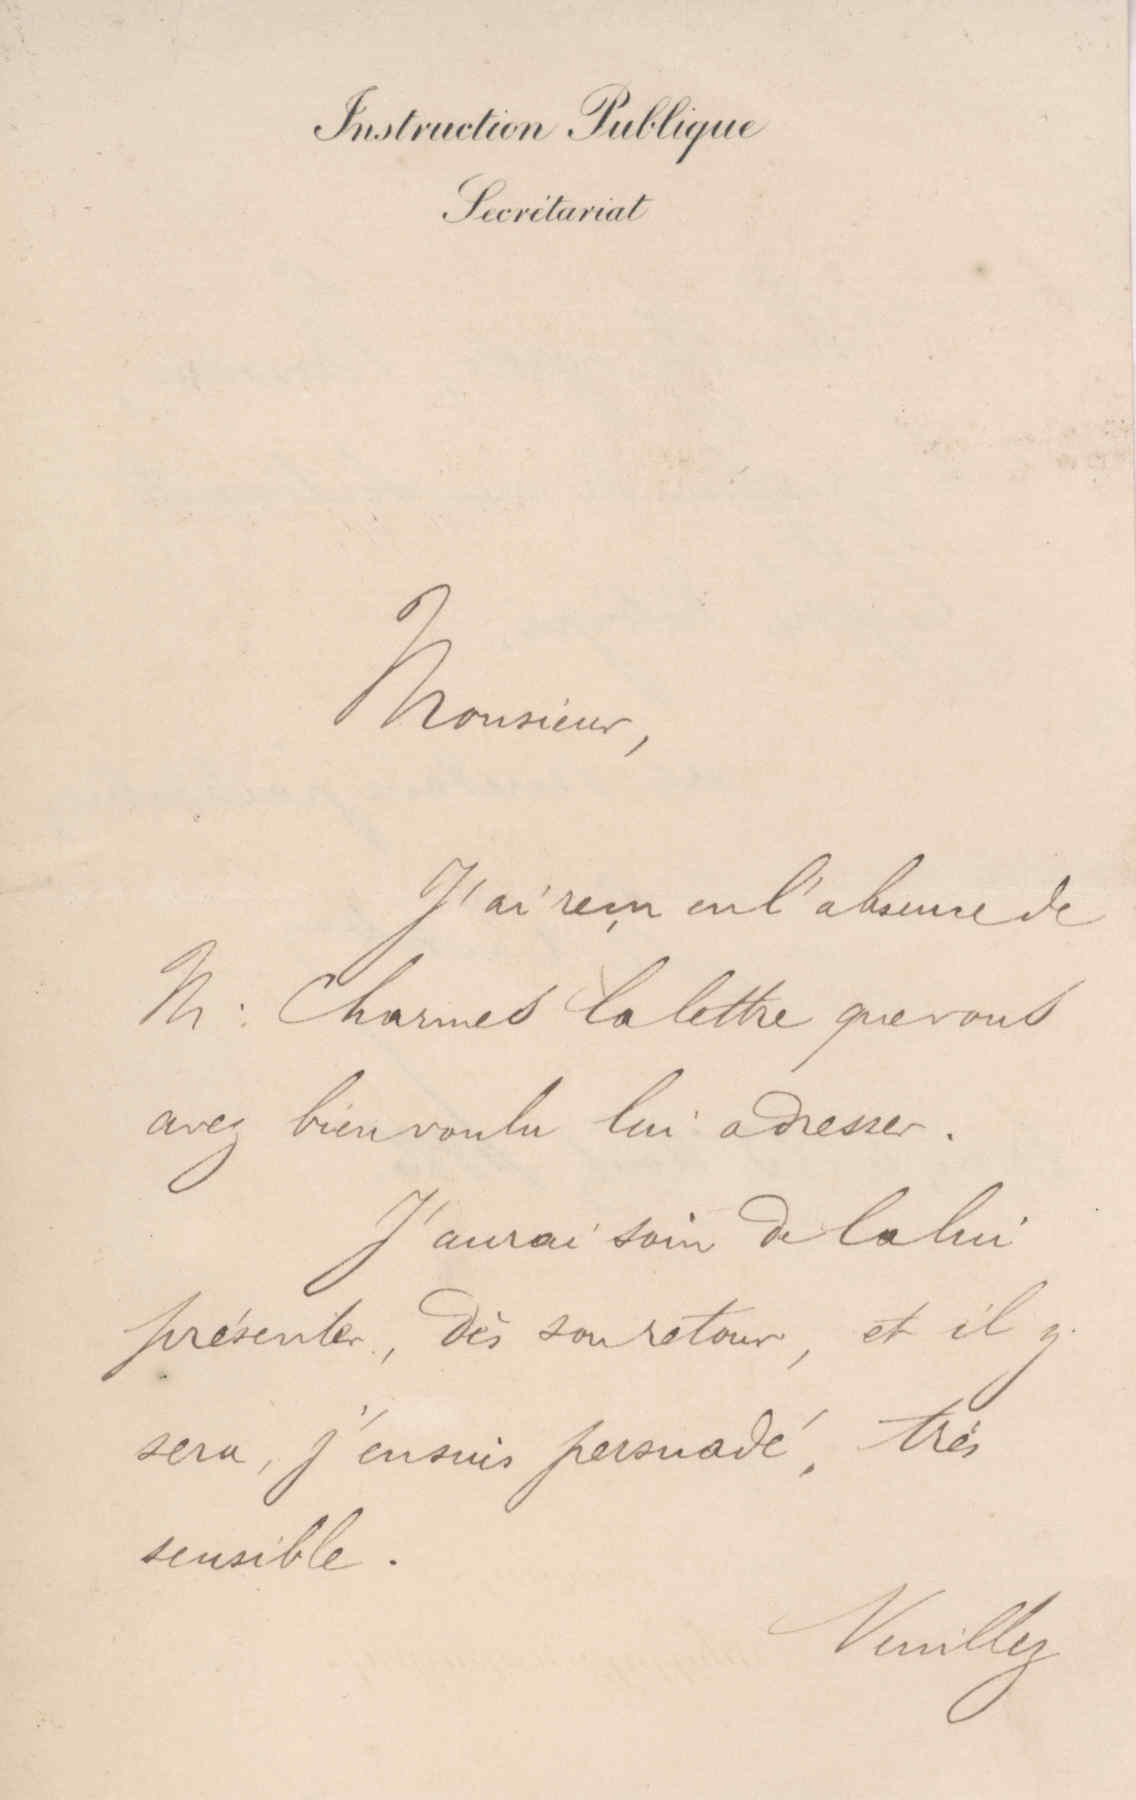 Instruction Publique
Secrétariat
Monsieur,
J'ai reçu en l'absence de
M. Charmes la lettre que vous
avez bien voulu lui adresser.
J'aurai soin de la lui
présenter, dès son retour, et il y
sera, j'en suis persuadé, très
sensible.
Veuillez